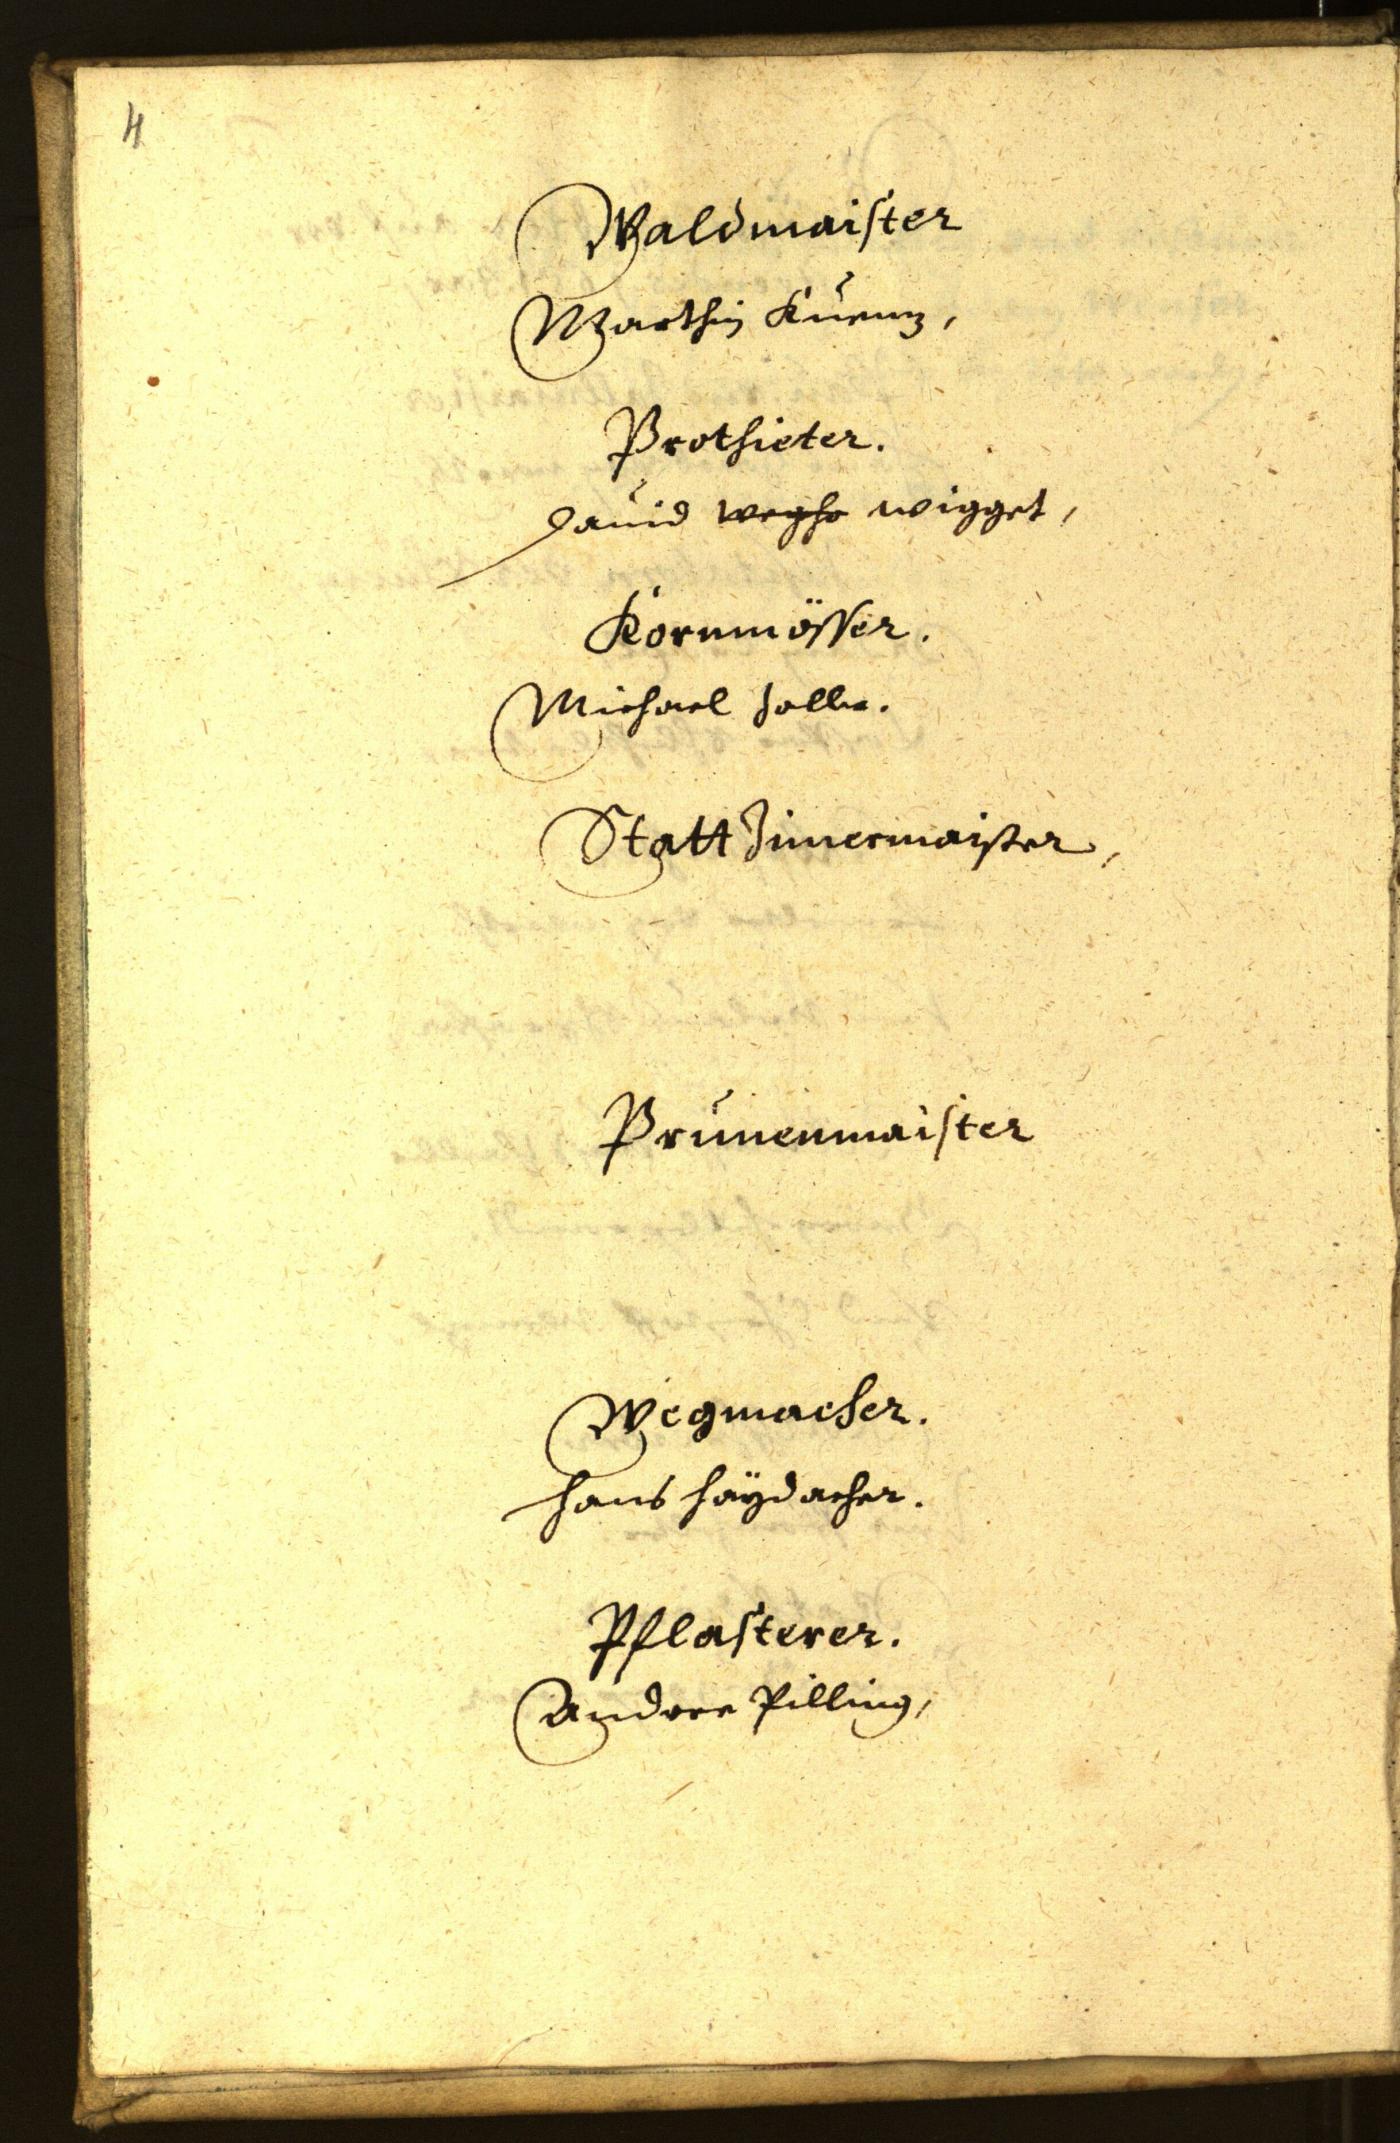 4
Waldmaister
Marthin Kuenz,
Prothieter.
Dauid weghe wigget,
Kornmösser.
Michael Zoller.
Statt Zimermaister,
Prunenmaister
Wegmacher.
Hans Haÿdacher.
Pflasterer.
Andree Pilling,